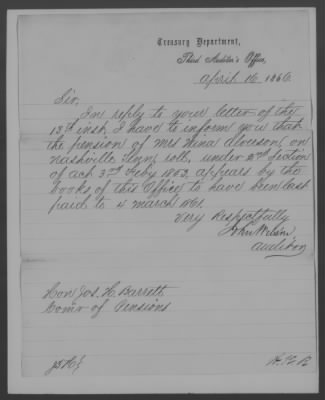 Treasury Department,
Third Auditor's Office,
April 16 1866
Sir,
In reply to your letter of the
13th inst. I have to inform you that
the pension of Mrs Alverson, on
Nashville Tenn, roll, under 2nd Section
of act 3rd Feby 1853, appears by the
books of this Office, to have been last
paid to 4 March 1861.
Very Respectfully
John Wilson
Auditor
Hon Jos. H. Barrett
Comr of Pensions